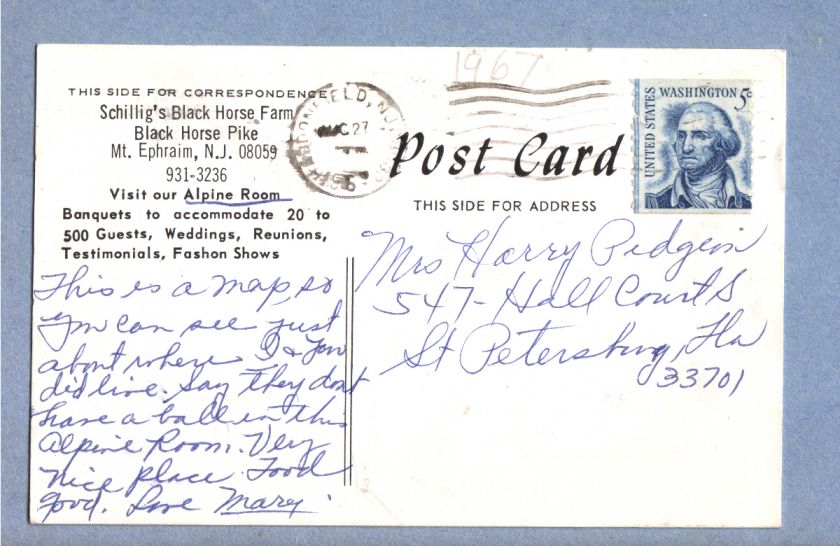 1967
THIS SIDE FOR CORRESPONDENCE
Schillig's Black Horse Farm
Black Horse Pike
Mt. Ephraim, N.J. 08059
931-3236
Visit our Alpine Room
Banquets to accommodate 20 to
500 Guests, Weddings, Reunions,
Testimonials, Fashon Shows
This is a map, so
You can see just
about where I & You
did live. Say they dont
have a ball in this
Alpine Room. Very
nice place. Food
good. Love Mary.
N.J.
27
Post Card
THIS SIDE FOR ADDRESS
UNITED STATES
WASHINGTON 5c
Mrs Harry Pidgeon
547-Hall Court S
St Petersburg, Fla
33701